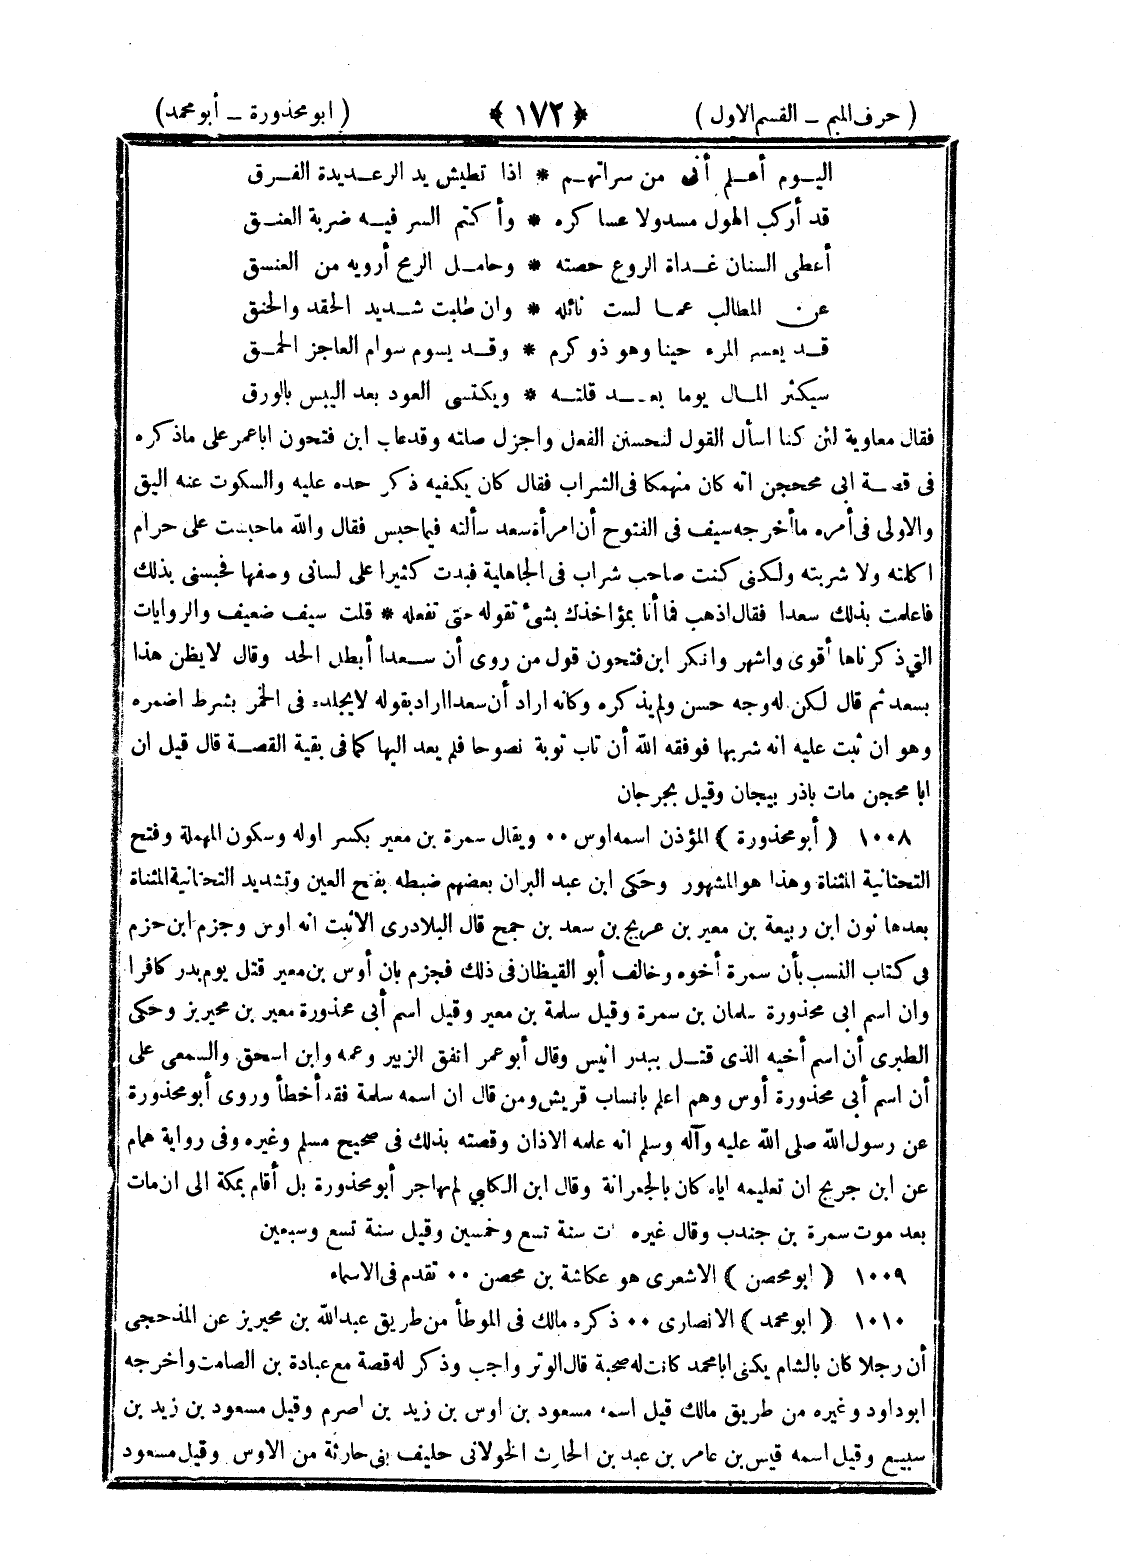 ( حرف الميم – القسم الاول ) ﴿ ١٧٢ ﴾ ( ابو محذورة – أبو محمد )
اليوم أعلم أنى من سراتهم * اذا تطيش يد الرعديدة الفرق
قد أركب الهول مسدولا عساكره * وأكتم السر فيه ضربة العنق
أعطى السنان غداة الروع حصته * وحامل الرمح أرويه من العنسق
عن المطالب عما لست نائله * وان طلبت شديد الحقد والحنق
قد يعسر المرء حينا وهو ذو كرم * وقد يسوم سوام العاجز الحمق
سيكثر المال يوما بعد قلته * ويكتسى العود بعد اليبس بالورق
فقال معاوية لئن كنا اسأل القول لنحسنن الفعل واجزل صلته وقد عاب ابن فتحون ابا عمر على ماذكره
فى قصة ابى محجن انه كان منهمكا فى الشراب فقال كان يكفيه ذكر حده عليه والسكوت عنه اليق
والاولى فى أمره ماأخرجه سيف فى الفتوح أن امرأة سعد سألته فيما حبس فقال والله ماحبست على حرام
اكلته ولا شربته ولكنى كنت صاحب شراب فى الجاهلية فبدت كثيرا على لسانى وصفها فحبسنى بذلك
فاعلمت بذلك سعدا فقال اذهب فما أنا بمؤاخذك بشئ تقوله حتى تفعله * قلت سيف ضعيف والروايات
التي ذكرناها أقوى واشهر وانكر ابن فتحون قول من روى أن سعدا أبطل الحد وقال لايظن هذا
بسعد ثم قال لكن له وجه حسن ولم يذكره وكانه اراد أن سعدا اراد بقوله لايجلده فى الخمر بشرط اضمره
وهو ان ثبت عليه انه شربها فوفقه الله أن تاب توبة نصوحا فلم يعد اليها كما فى بقية القصة قال قيل ان
ابا محجن مات باذر بيجان وقيل بجرجان
١٠٠٨ ( أبو محذورة ) المؤذن اسمه اوس ٠٠ ويقال سمرة بن معير بكسر اوله وسكون المهملة وفتح
التحتانية المثناة وهذا هو المشهور وحكى ابن عبد البر ان بعضهم ضبطه بفتح العين وتشديد التحتانية المثناة
بعدها نون ابن ربيعة بن معير بن عريج بن سعد بن جمح قال البلادرى الاثبت انه اوس وجزم ابن حزم
فى كتاب النسب بأن سمرة أخوه وخالف أبو اليقظان فى ذلك فجزم بان أوس بن معير قتل يوم بدر كافرا
وان اسم ابى محذورة سلمان بن سمرة وقيل سلمة بن معير وقيل اسم أبى محذورة معير بن محيريز وحكى
الطبرى أن اسم أخيه الذى قتل ببدر انيس وقال أبو عمر اتفق الزبير وعمه وابن اسحق والسمعى على
أن اسم أبى محذورة أوس وهم اعلم بانساب قريش ومن قال ان اسمه سلمة فقد أخطأ وروى أبو محذورة
عن رسول الله صلى الله عليه وآله وسلم انه علمه الاذان وقصته بذلك فى صحيح مسلم وغيره وفى رواية همام
عن ابن جريج ان تعليمه اياه كان بالجعرانة وقال ابن الكلبي لم يهاجر أبو محذورة بل أقام بمكة الى ان مات
بعد موت سمرة بن جندب وقال غيره سنة تسع وخمسين وقيل سنة تسع وسبعين
١٠٠٩ ( ابو محصن ) الاشعرى هو عكاشة بن محصن ٠٠ تقدم فى الاسماء
١٠١٠ ( ابو محمد ) الانصارى ٠٠ ذكره مالك فى الموطأ من طريق عبد الله بن محيريز عن المذحجى
أن رجلا كان بالشام يكنى ابا محمد كانت له صحبة قال الوتر واجب وذكر له قصة مع عبادة بن الصامت واخرجه
ابو داود وغيره من طريق مالك قيل اسمه مسعود بن اوس بن زيد بن اصرم وقيل مسعود بن زيد بن
سبيع وقيل اسمه قيس بن عامر بن عبد بن الحارث الخولانى حليف بنى حارثة من الاوس وقيل مسعود